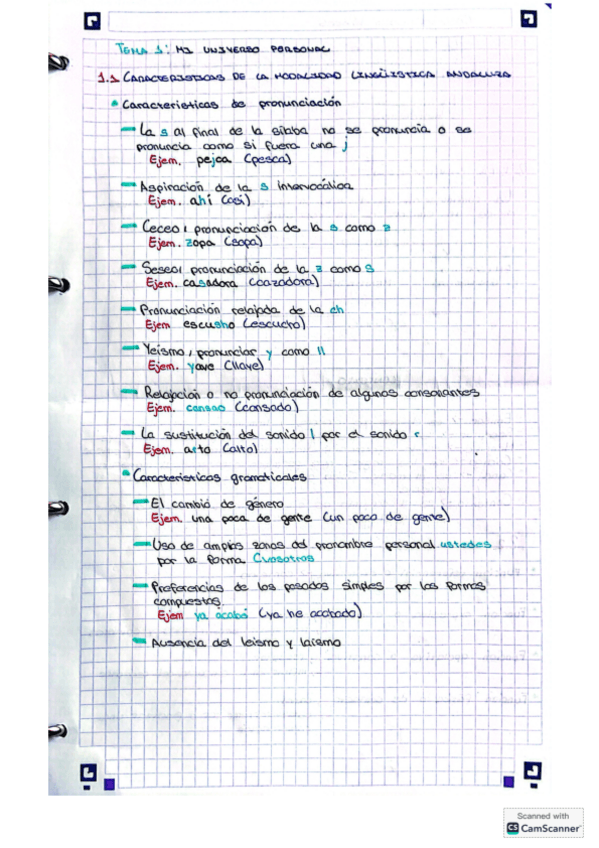 TEMA 1: MI UNIVERSO PERSONAL
1.1 CARACTERISTICAS DE LA MODALIDAD LINGÜISTICA ANDALUZA
Caracteristicas de pronunciación
La s al final de la silaba no se pronuncia o se
pronuncia como si fuera una j
Ejem. pejca (pesca)
Aspiración de la s intervocálica
Ejem. ahí (así)
Ceceo, pronunciación de la s como z
Ejem. zopa (sopa)
Seseo, pronunciación de la z como s
Ejem. casadora (cazadora)
Pronunciación relajada de la ch
Ejem escusho (escucho)
Yeismo, pronunciar y como ll
Ejem. yave (llave)
Relajación o no pronunciación de algunos consonantes
Ejem. cansao (cansado)
La sustitución del sonido l por el sonido r
Ejem. arto (alto)
Caracteristicas gramaticales
El cambió de género
Ejem. una poca de gente (un poco de gente)
Uso de amplias zonas del pronombre personal ustedes
por la forma (vosotros
Preferencias de los pasados simples por las formas
compuestas
Ejem ya acabó (ya he acabado)
Ausencia del leismo y laismo
Scanned with
CS CamScanner